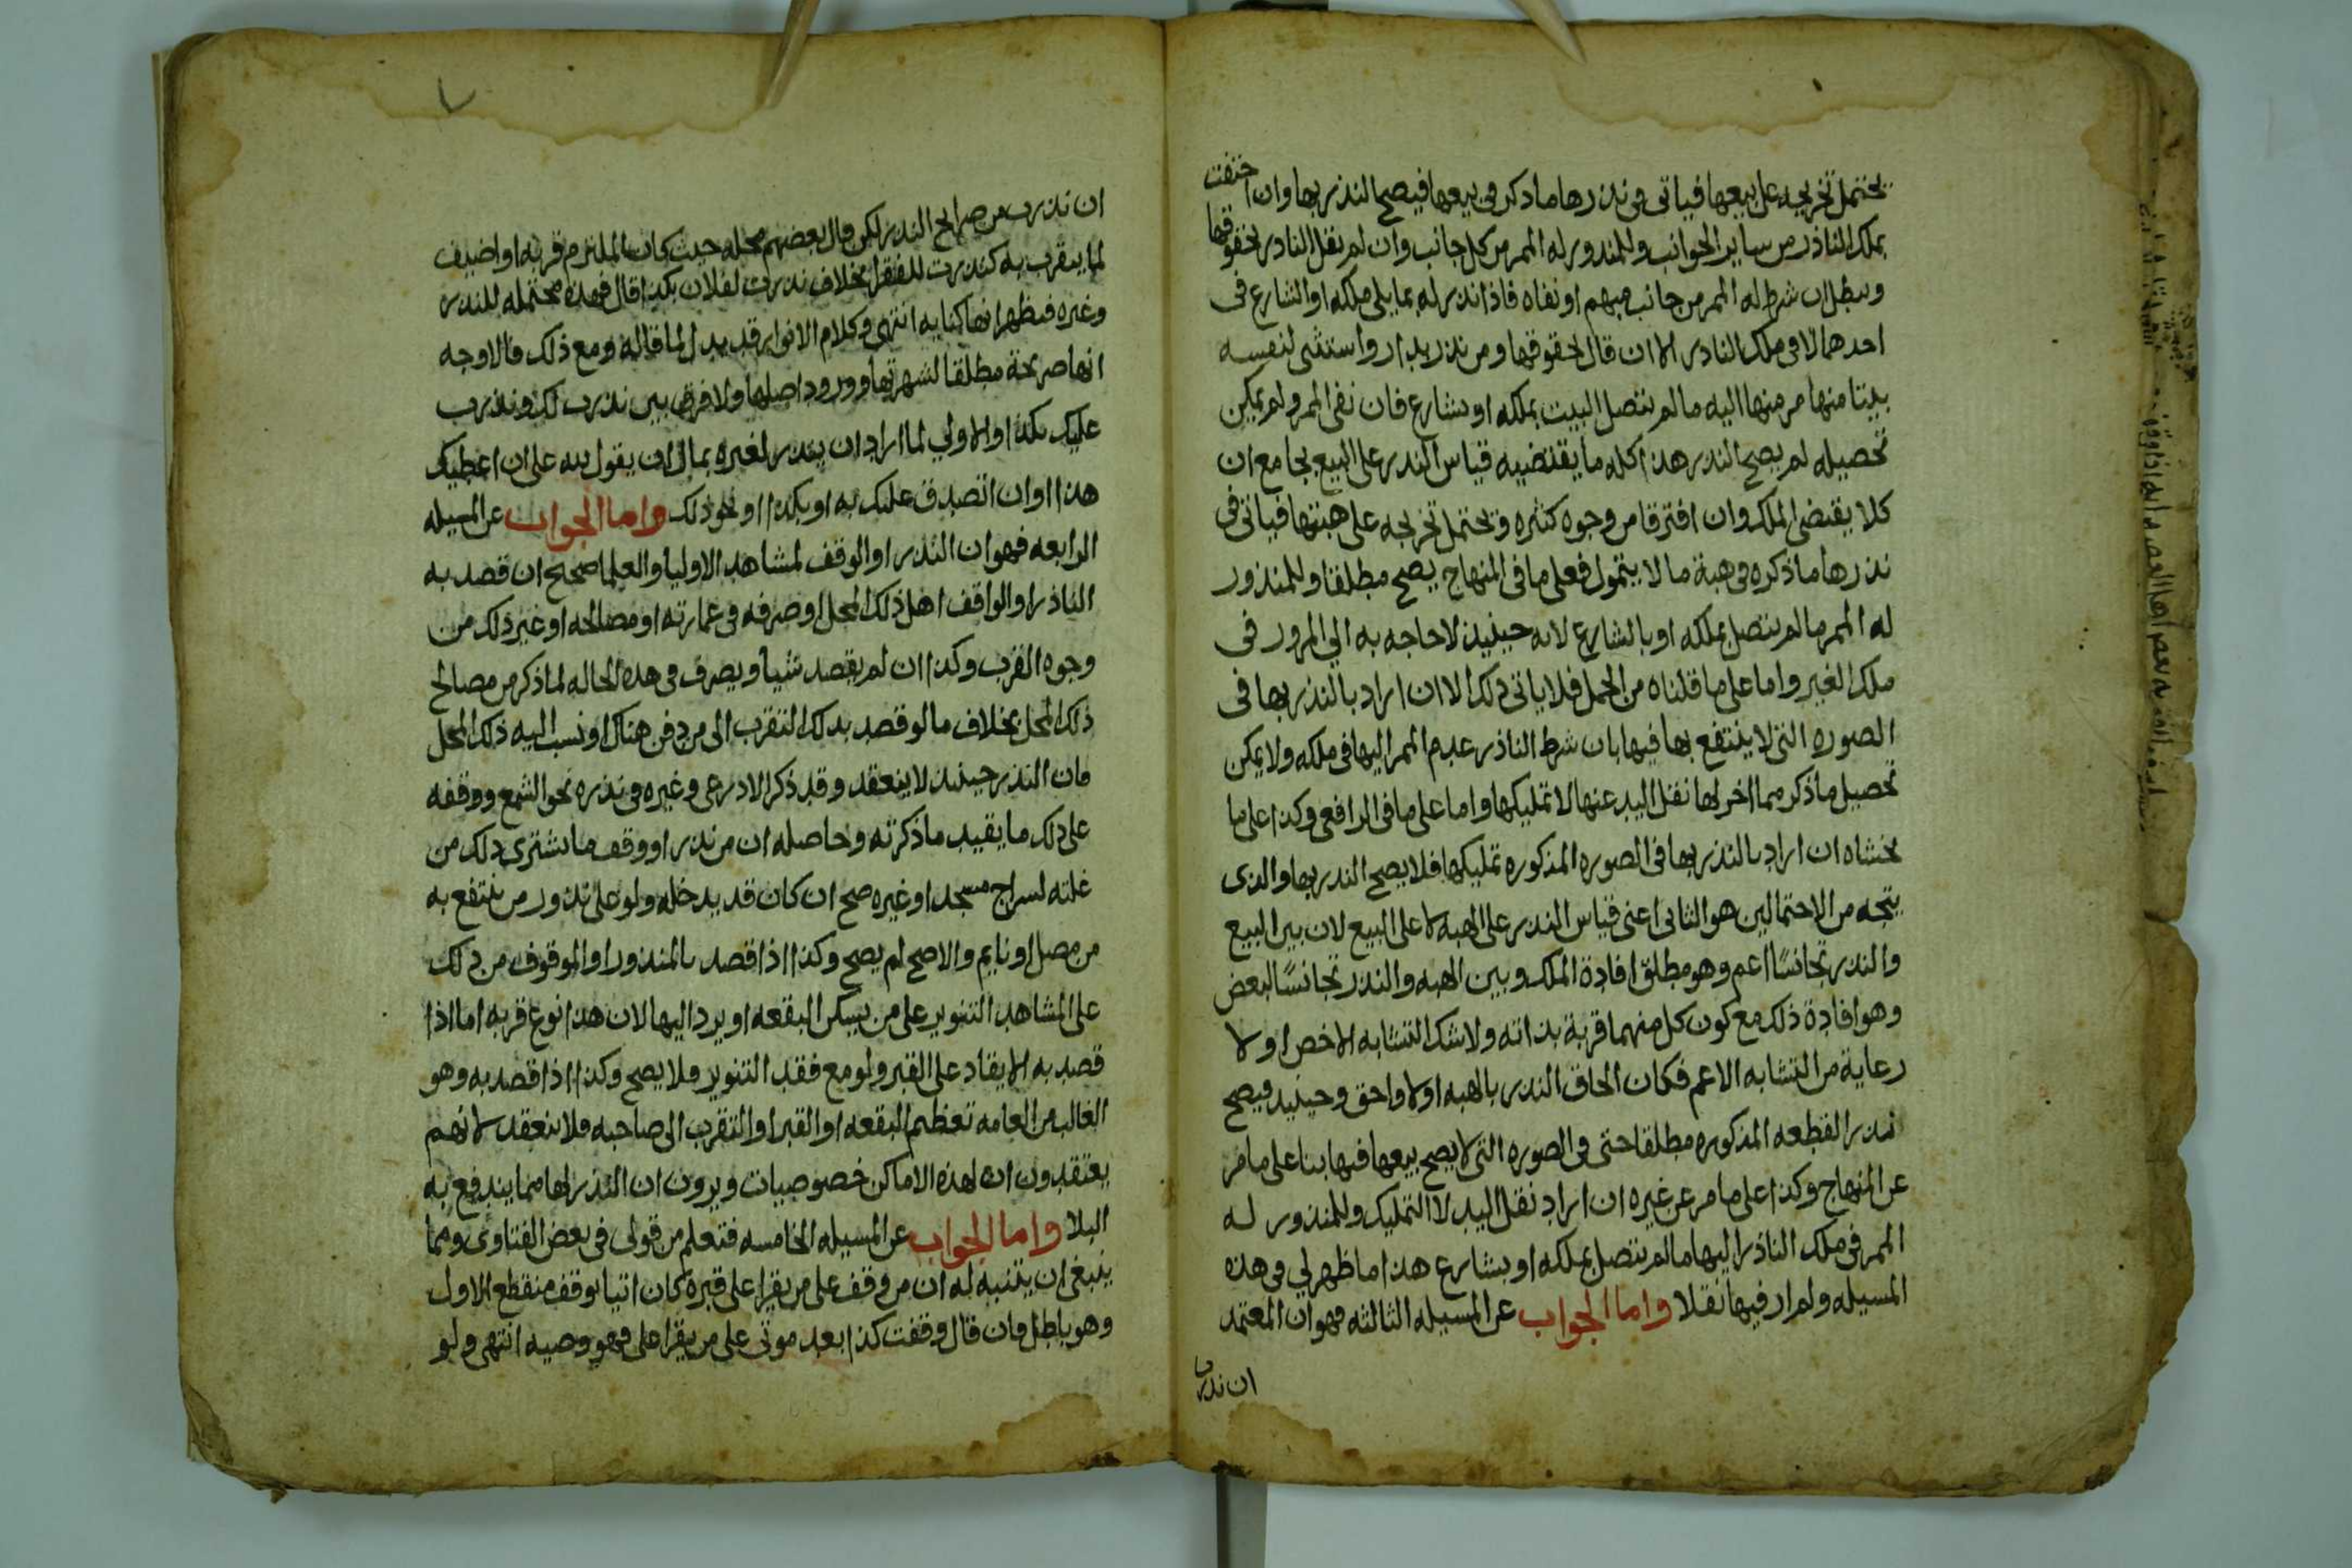 يحتمل تخريجه على بيعها فياتى فى نذرها ما ذكر فى بيعها فيصح النذر بها وان احتفت
بملك الناذر من ساير الجوانب وللمنذور له الممر من كل جانب وان لم يقل الناذر بحقوقها
ويبطل ان شرط له الممر من جانب مبهم او نفاه فاذا نذر له بما يلى ملكه او الشارع فى
احدهما لا فى ملك الناذر الا ان قال بحقوقها ومن نذر بدار واستثنى لنفسه
بيتا منها مر منها اليه ما لم يتصل البيت بملكه او بشارع فان نفى الممر ولم يمكن
تحصيله لم يصح النذر هذا كله ما يقتضيه قياس النذر على البيع بجامع ان
كلا يقتضى الملك وان افترقا من وجوه كثيره ويحتمل تخريجه على هبتها فياتى فى
نذرها ما ذكره فى هبة ما لا يتمول فعلى ما فى المنهاج يصح مطلقا وللمنذور
له الممر ما لم يتصل بملكه او بالشارع لانه حينيذ لا حاجه به الى المرور فى
ملك الغير واما على ما قلناه من الحمل فلا ياتى ذلك الا ان اراد بالنذر بها فى
الصوره التى لا ينتفع بها فيها بان شرط الناذر عدم الممر اليها فى ملكه ولا يمكن
تحصيل ما ذكر مما اخر لها نقل اليد عنها لا تمليكها واما على ما فى الرافعى وكذا على ما
بحثناه ان اراد بالنذر بها فى الصوره المذكوره تمليكها فلا يصح النذر بها والذى
يتجه من الاحتمالين هو الثانى اعنى قياس النذر على الهبه لا على البيع لان بين البيع
والنذر تجانسًا اعم وهو مطلق افادة الملك وبين الهبه والنذر تجانسًا لبعض
وهو افادة ذلك مع كون كل منهما قربة بذاته ولا شك التشابه الاخص اولا
رعاية من التشابه الاعم فكان الحاق النذر بالهبه اولا واحق وحينيذ فيصح
نذر القطعه المذكوره مطلقا حتى فى الصوره التى لا يصح بيعها فيها بنا على ما مر
عن المنهاج وكذا على ما مر عن غيره ان اراد نقل اليد لا التمليك وللمنذور له
الممر فى ملك الناذر اليها ما لم يتصل بملكه او بشارع هذا ما ظهر لى فى هذه
المسيله ولم ار فيها نقلا واما الجواب عن المسيله الثالثه فهو ان المعتمد
ان نذرت
ان نذرت من صرايح النذر لكن قال بعضهم محله حيث كان الملتزم قربه او اضيف
لما يتقرب به كنذرت للفقرا بخلاف نذرت لفلان بكذا قال فهذه محتمله للنذر
وغيره فيظهر انها كنايه انتهى وكلام الانوار قد يدل لما قاله ومع ذلك فالاوجه
انها صريحة مطلقا لشهرتها وورود اصلها ولا فرق بين نذرت لك ونذرت
عليك بكذا والاولى لما اراد ان ينذر لغيره بمال ان يقول لله على ان اعطيك
هذا او ان اتصدق عليك به او بكذا او نحو ذلك واما الجواب عن المسيله
الرابعه فهو ان النذر او الوقف لمشاهد الاوليا والعلما صحيح ان قصد به
الناذر او الواقف اهل ذلك المحل او صرفه فى عمارته او مصالحه او غير ذلك من
وجوه القرب وكذا ان لم يقصد شيا ويصرف فى هذه الحاله لما ذكر من مصالح
ذلك المحل بخلاف ما لو قصد بذلك التقرب الى من دفن هناك او نسب اليه ذلك المحل
فان النذر حينيذ لا ينعقد وقد ذكر الاذرعى وغيره فى نذره نحو الشمع ووقفه
على ذلك ما يقيد ما ذكرته وحاصله ان من نذر او وقف ما يشترى ذلك من
غلته لسراج مسجد او غيره صح ان كان قد يدخله ولو على ندور من ينتفع به
من مصل او نايم والا صح لم يصح وكذا اذا قصد بالمنذور او الموقوف من ذلك
على المشاهد التنوير على من يسكن البقعه او يرد اليها لان هذا نوع قربه اما اذا
قصد به الايقاد على القبر ولو مع فقد التنوير فلا يصح وكذا اذا قصد به وهو
الغالب من العامه تعظيم البقعه او القبر او التقرب الى صاحبه فلا ينعقد لانهم
يعتقدون ان لهذه الاماكن خصوصيات ويرون ان النذر لها مما يندفع به
البلا واما الجواب عن المسيله الخامسه فتعلم من قولى فى بعض الفتاوى ومما
ينبغى ان يتنبه له ان من وقف على من يقرا على قبره كان اتيا بوقف منقطع الاول
وهو باطل فان قال وقفت كذا بعد موتى على من يقرا على فهو وصيه انتهى ولو